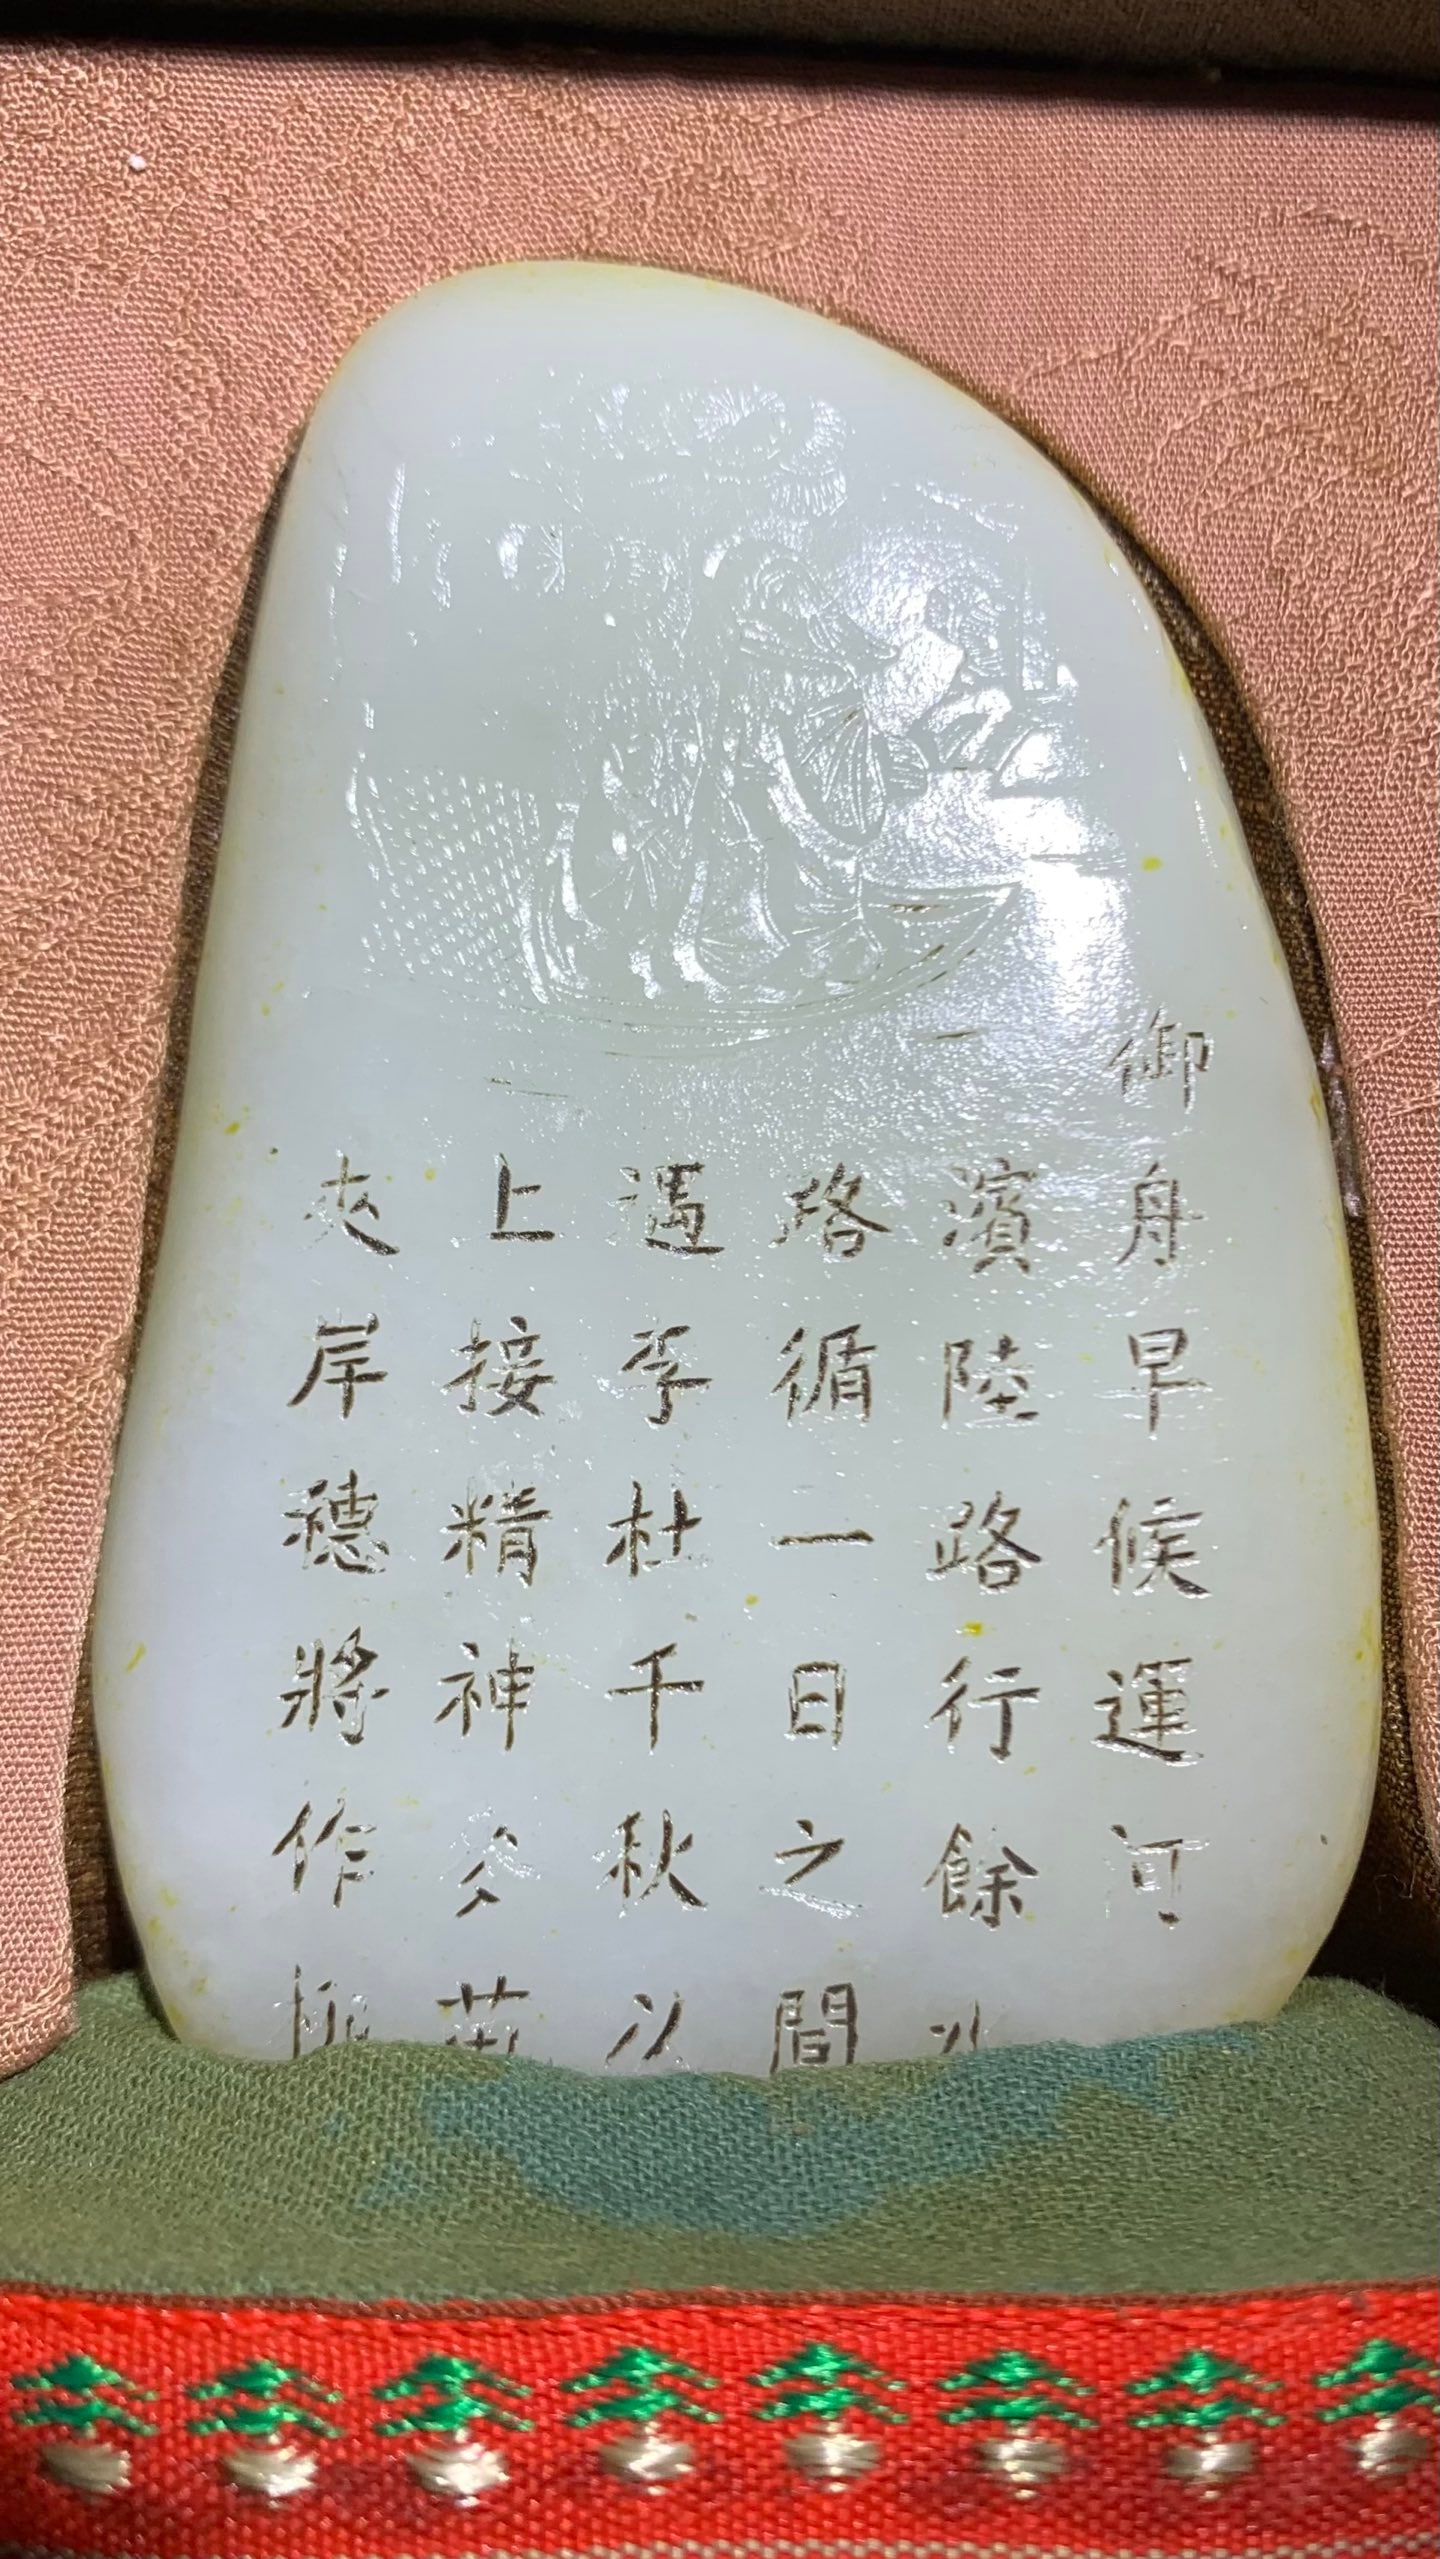 御舟早候運河
濱陸路行餘
路循一日之間
遇李杜千秋以
上接精神
夾岸穗將作